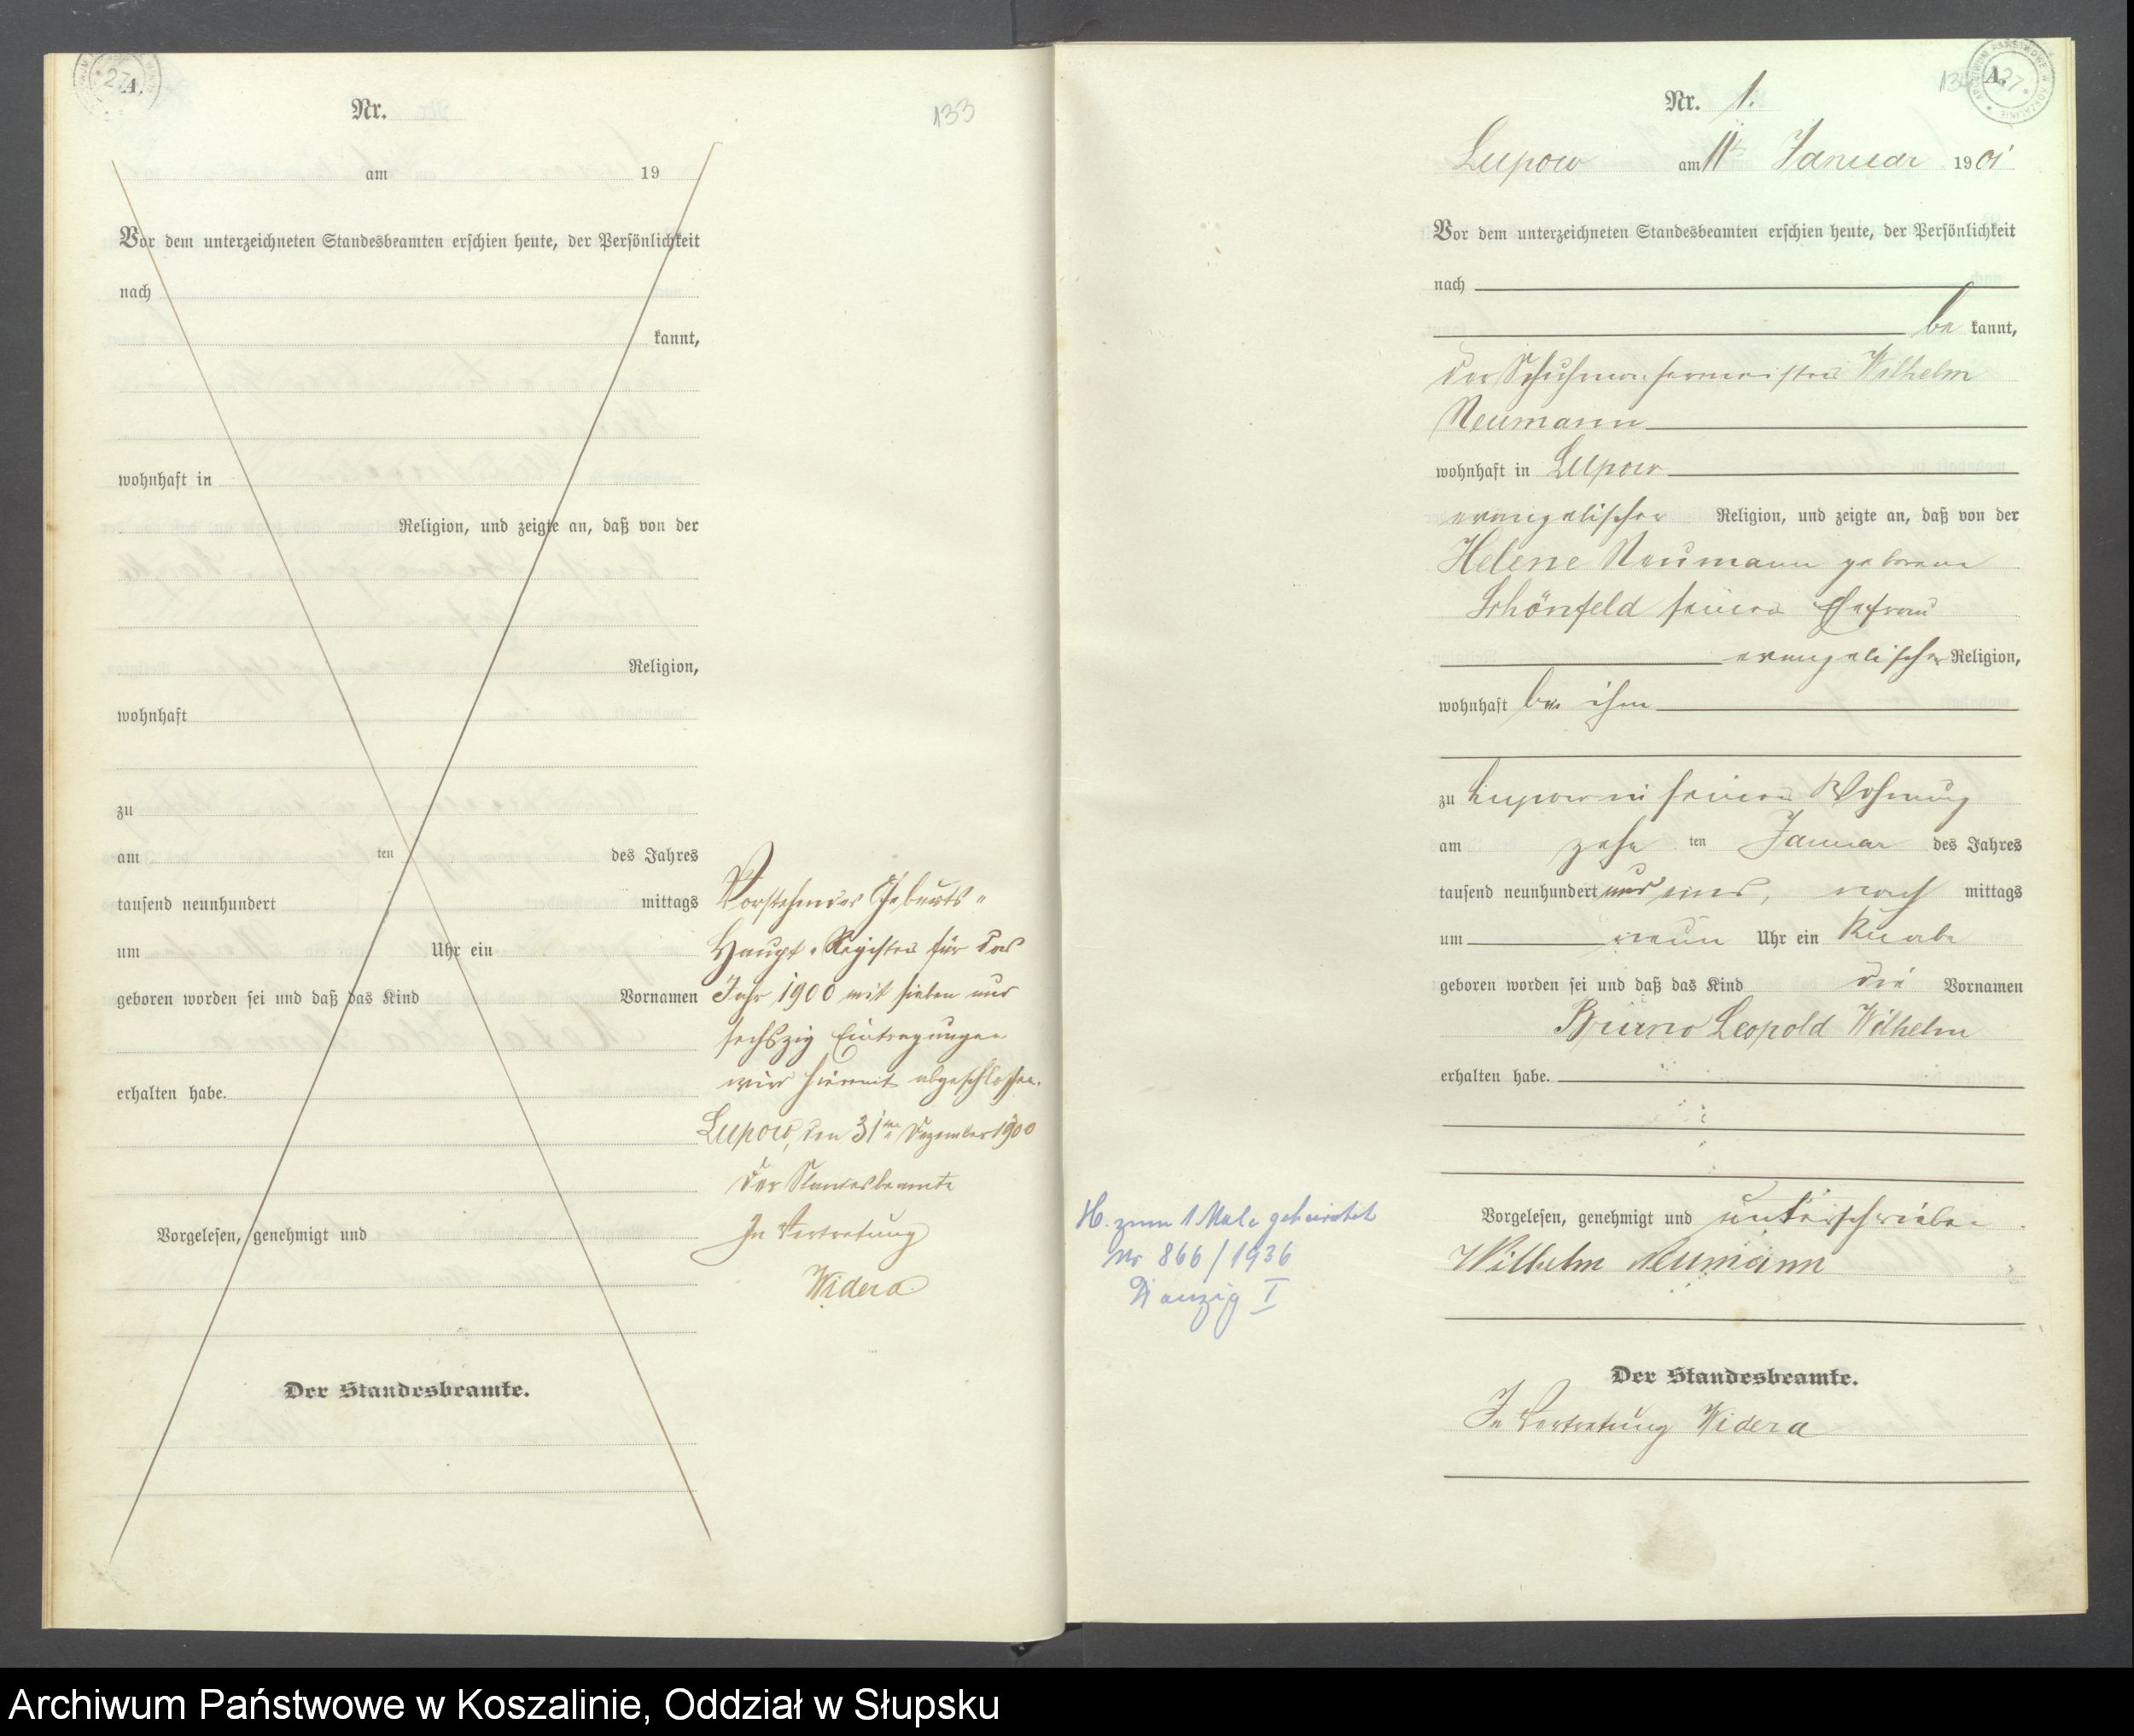 A.
27
Nr.
133
am 19
Vor dem unterzeichneten Standesbeamten erschien heute, der Persönlichkeit
nach
kannt,
wohnhaft in
Religion, und zeigte an, daß von der
Religion,
wohnhaft
zu
am ten des Jahres
tausend neunhundert mittags
um Uhr ein
geboren worden sei und daß das Kind Vornamen
erhalten habe.
Vorgelesen, genehmigt und
Der Standesbeamte.
Vorstehendes Geburts-
Haupt-Register für das
Jahr 1900 mit sieben und
sechszig Eintragungen
wird hiermit abgeschlossen.
Lupow, den 31ten Dezember 1900
Der Standesbeamte
In Vertretung
Widera
A.
27
ARCHIWUM PAŃSTWOWE W KOSZALINIE
Nr. 1.
Lupow am 11ten Januar 1901
Vor dem unterzeichneten Standesbeamten erschien heute, der Persönlichkeit
nach
be kannt,
der Schuhmachermeister Wilhelm
Neumann
wohnhaft in Lupow
evangelischer Religion, und zeigte an, daß von der
Helene Neumann geborene
Schönfeld seiner Ehefrau
evangelischer Religion,
wohnhaft bei ihm
zu Lupow in seiner Wohnung
am zehn ten Januar des Jahres
tausend neunhundert und eins, nach mittags
um neun Uhr ein Knabe
geboren worden sei und daß das Kind die Vornamen
Bruno Leopold Wilhelm
erhalten habe.
Vorgelesen, genehmigt und unterschrieben
Wilhelm Neumann
Der Standesbeamte.
In Vertretung Widera
H. zum 1 Male geheiratet
Nr 866/1936
Danzig I
Archiwum Państwowe w Koszalinie, Oddział w Słupsku